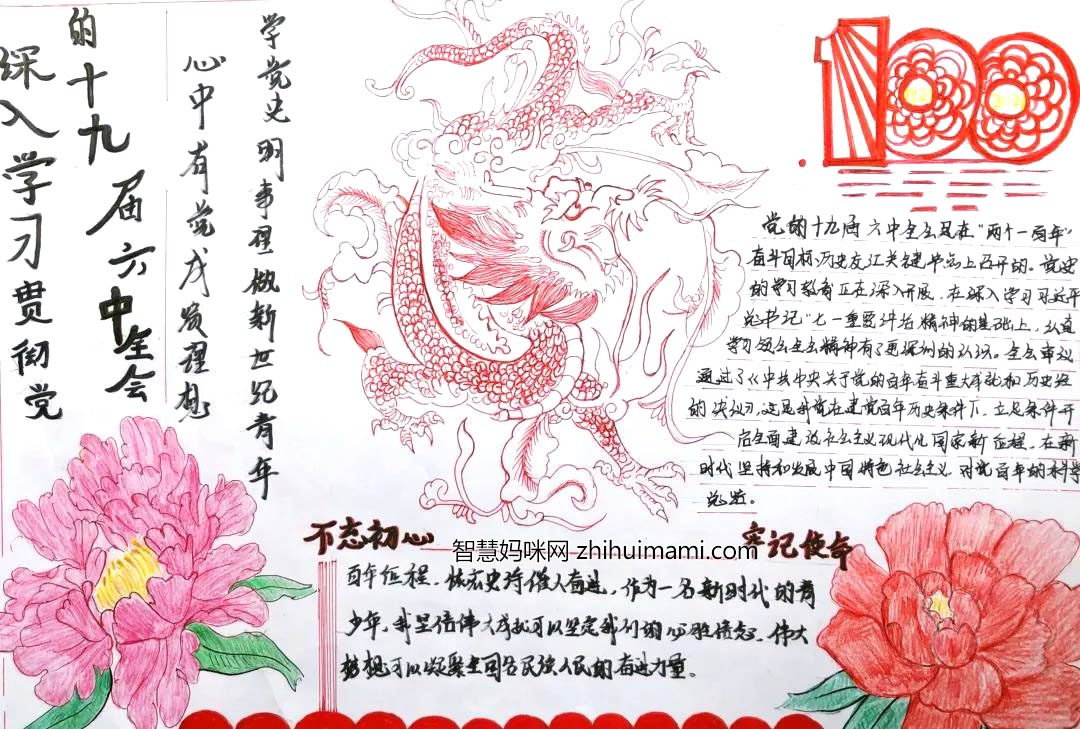 深入学习贯彻党
的十九届六中全会
心中有党成演理想
学党史明事理做新世纪青年
100
党的十九届六中全会是在“两个一百年”
奋斗目标历史交汇关键节点上召开的。党史
的学习教育正在深入开展，在深入学习习近平
总书记“七一重要讲话精神的基础上，认真
学习领会全会精神有了更深刻的认识。全会审议
通过了《中共中央关于党的百年奋斗重大成就和历史经
的决议》，这是我党在建党百年历史条件下，立足条件开
启全面建设社会主义现代化国家新征程，在新
时代坚持和发展中国特色社会主义 对党百年的科学
总结。
不忘初心
牢记使命
智慧妈咪网 zhihuimami.com
百年征程，恢宏史诗催人奋进，作为一名新时代的青
少年，我坚信伟大成就可以坚定我们的必胜信念，伟大
梦想可以凝聚全国各民族人民的奋进力量。